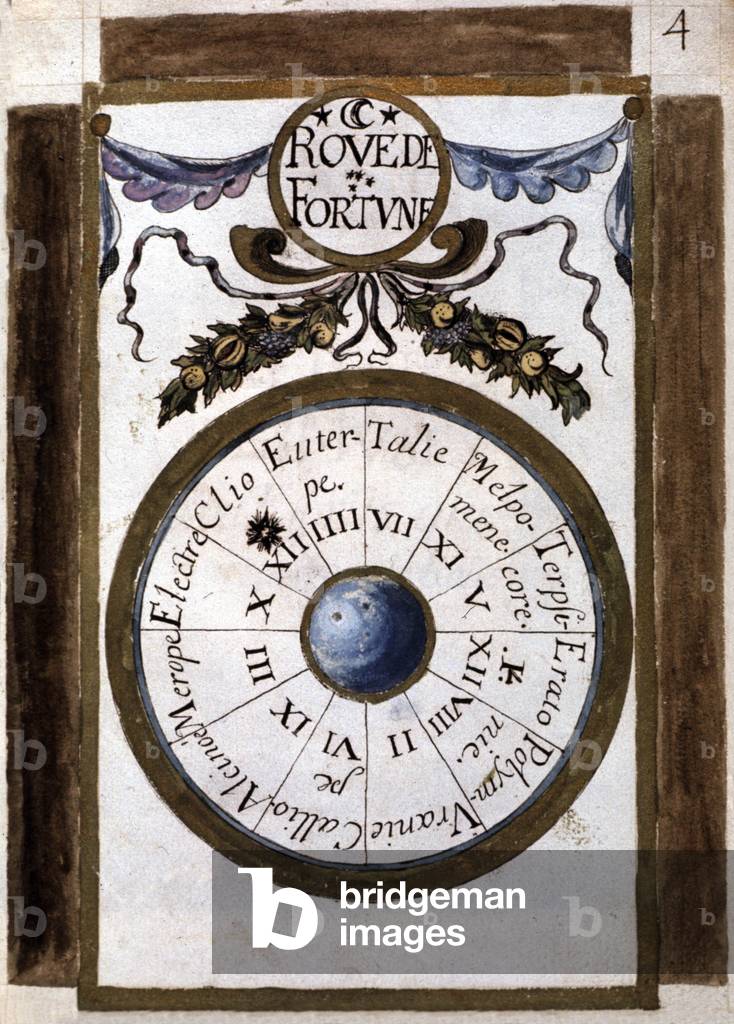 4
ROVE DE
FORTVNE
Euter-
pe.
IIII
Talie
VII
Melpo-
mene.
XI
Terpsi-
core.
V
Erato
XII
Polym-
nie.
VIII
Vranie
II
Callio-
pe
VI
Alcinoé
IX
Merope
III
Electre
X
Clio
XII
b
bridgeman
images